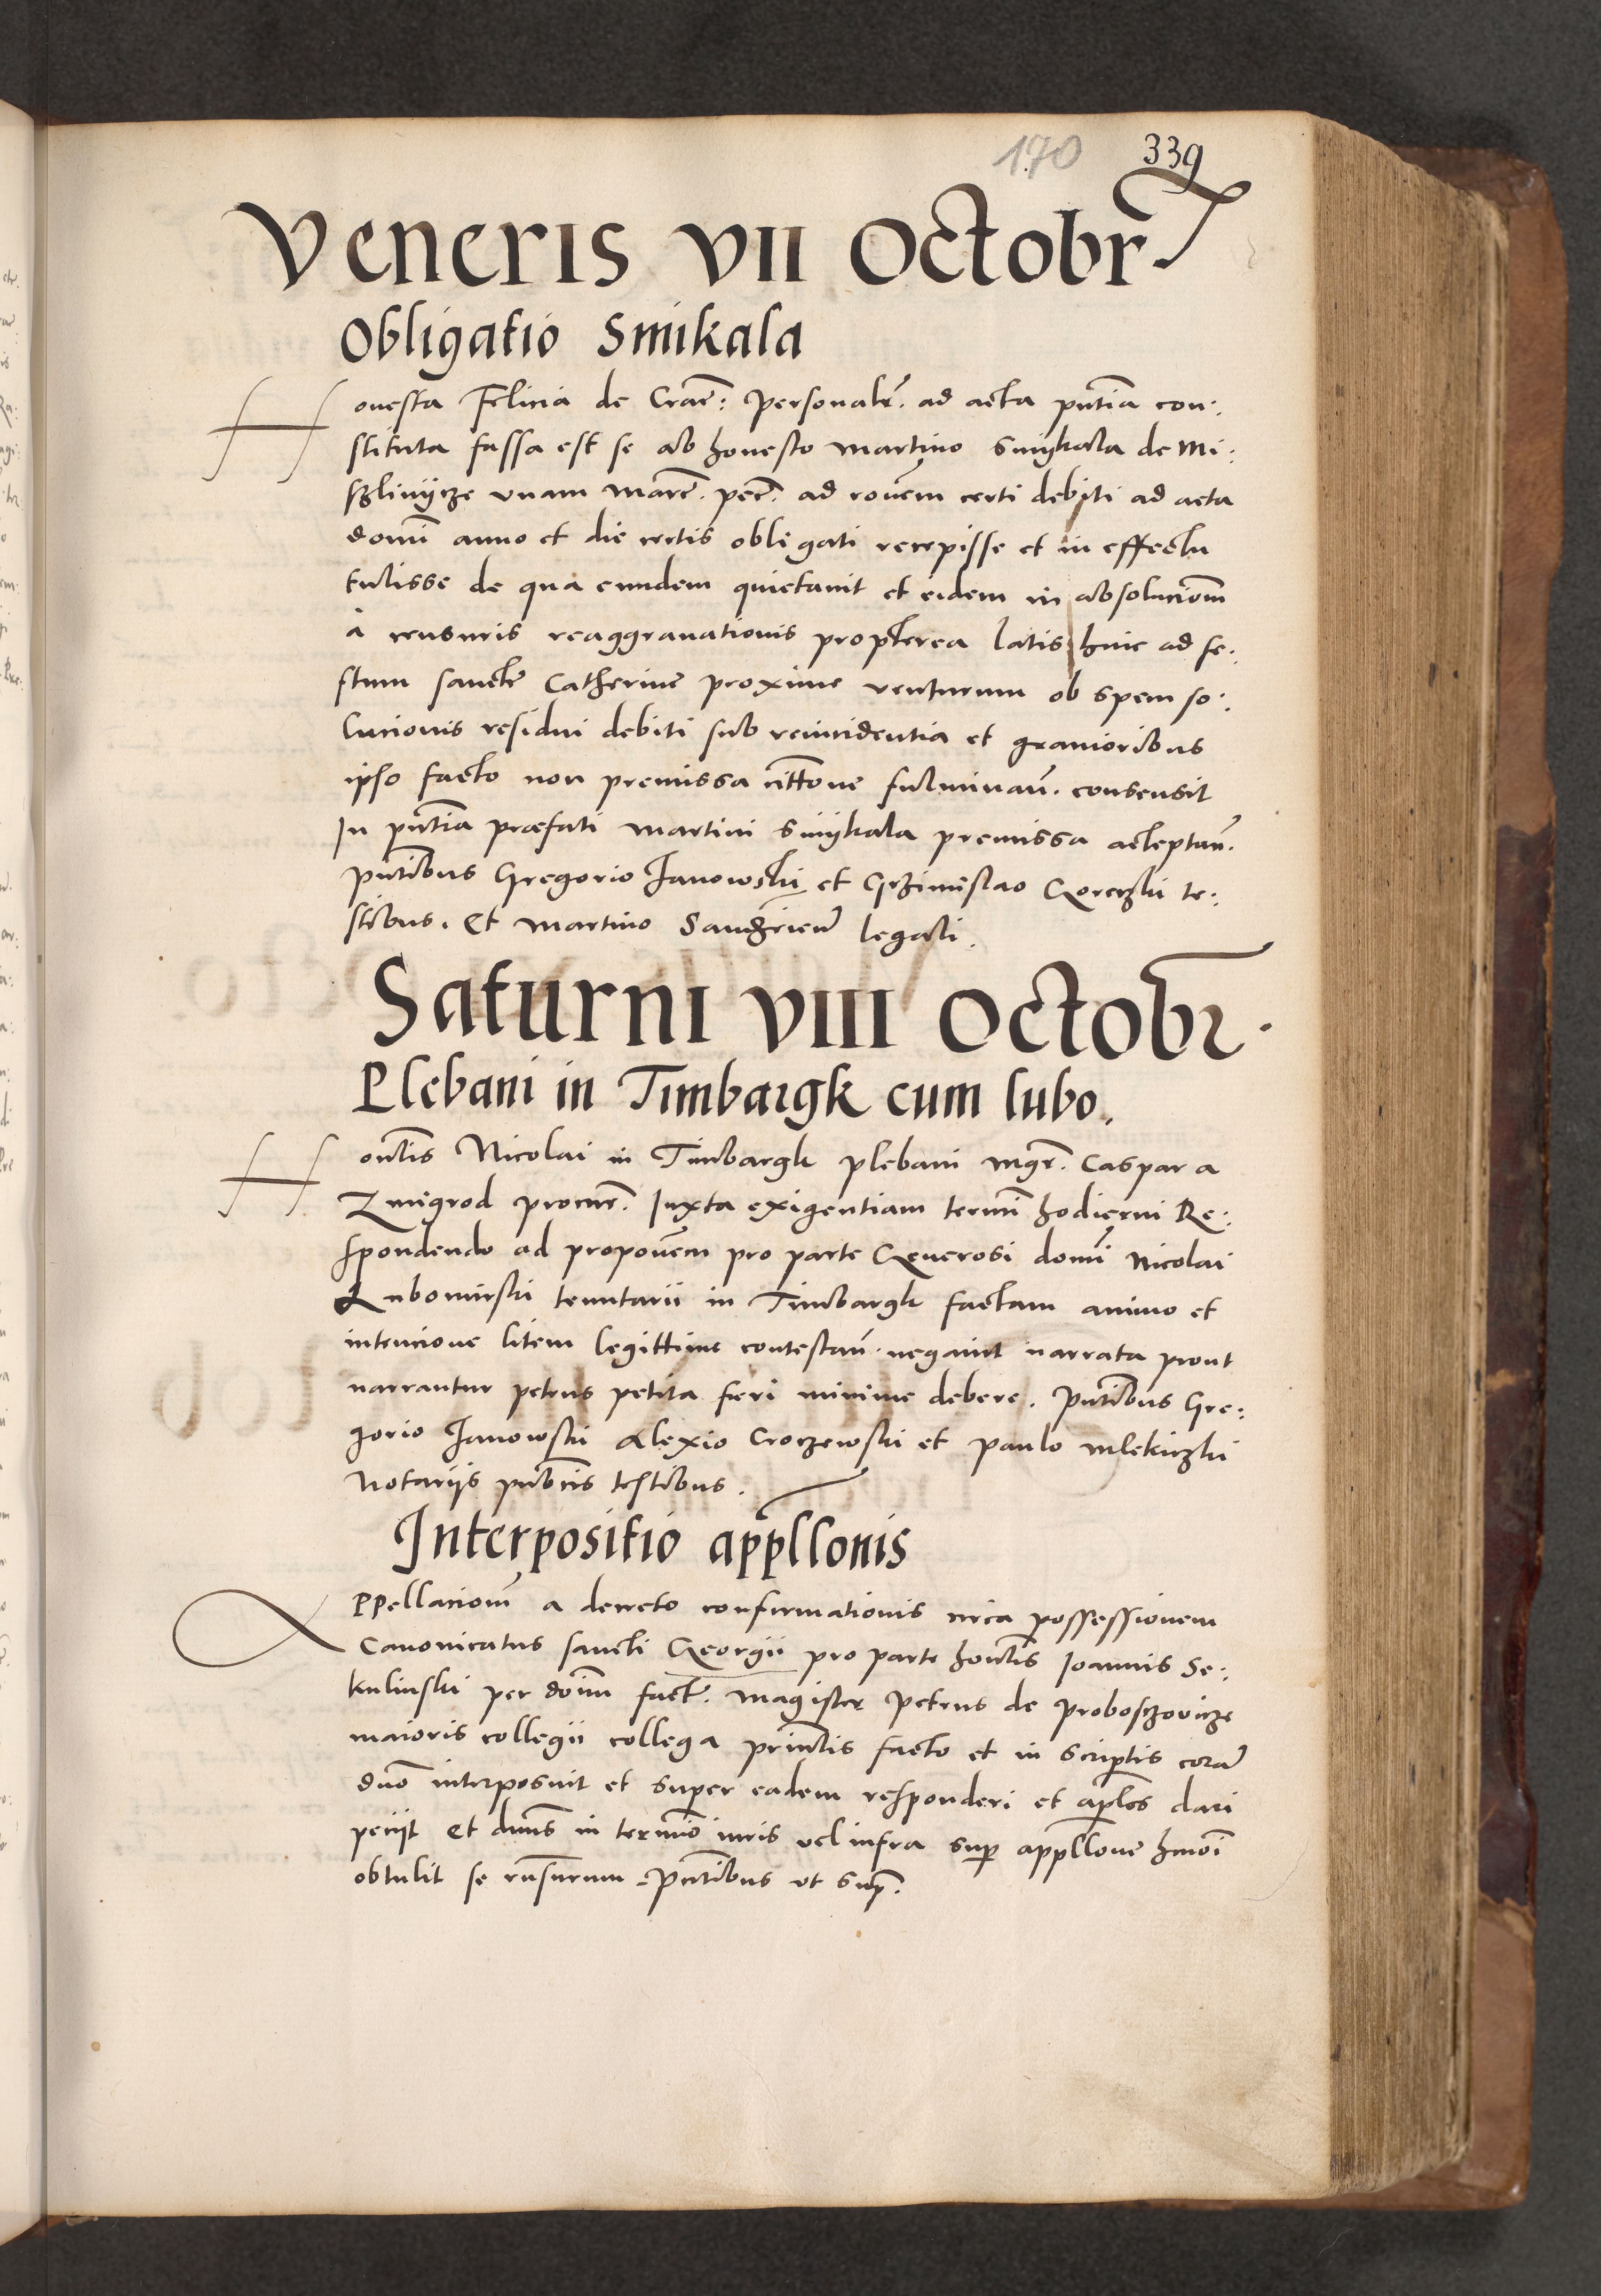 170 339
Veneris VII Octobr
Obligatio Smikala
Honesta Felicia de Crac: personalr. ad acta pntia con:
stituta fassa est se ab honesto Martino Smijkala de Mi:
szliniicze vnam marc. pec. ad ronem certi debiti ad acta
domi anno et die certis obligati recepisse et in effectu
tulisse de qua eundem quietauit et eidem in absolucionm
a censuris reaggrauationis propterea latis hinc ad fe:
stum sancte Catherine proxime venturum ob spem so:
lucionis residui debiti sub reincidentia et grauioribus
ipso facto non premissa cittone fulminan. consensit
In pntia præfati Martini Smijkala premissa acceptan.
pntibus Gregorio Janowski et Grzimislao Goreczki te:
stibus. Et Martino legali.
Saturni VIII Octobr.
Plebani in Timbargk cum lubo.
Hontis Nicolai in Timbargk plebani mgr. Caspar a
Zmigrod procur. Juxta exigentiam termi hodierni Re:
spondendo ad proponem pro parte Generosi domi Nicolai
Lubomirski tenutarii in Timbargk factam animo et
intencione litem legittime contestan. negauit narrata prout
narrantur petens petita fieri minime debere. Pntibus Gre:
gorio Janowski Alexio Croczewski et paulo Mlekiczki
Notariis publcis testibus.
Interpositio appllonis
Appellacionm a decreto confirmationis circa possessionem
Canonicatus sancti Georgii pro parte hontis Joannis Se:
kulinski per domm fact. Magister Petrus de Proboszczovicze
maioris collegii collega printis facto et in scriptis cora
duo interposuit et super eadem responderi et aplos dari
peciit Et dnus in termio iuris vel infra sup appllone hmoi
obtulit se rnsurum. Pntibus vt sup.